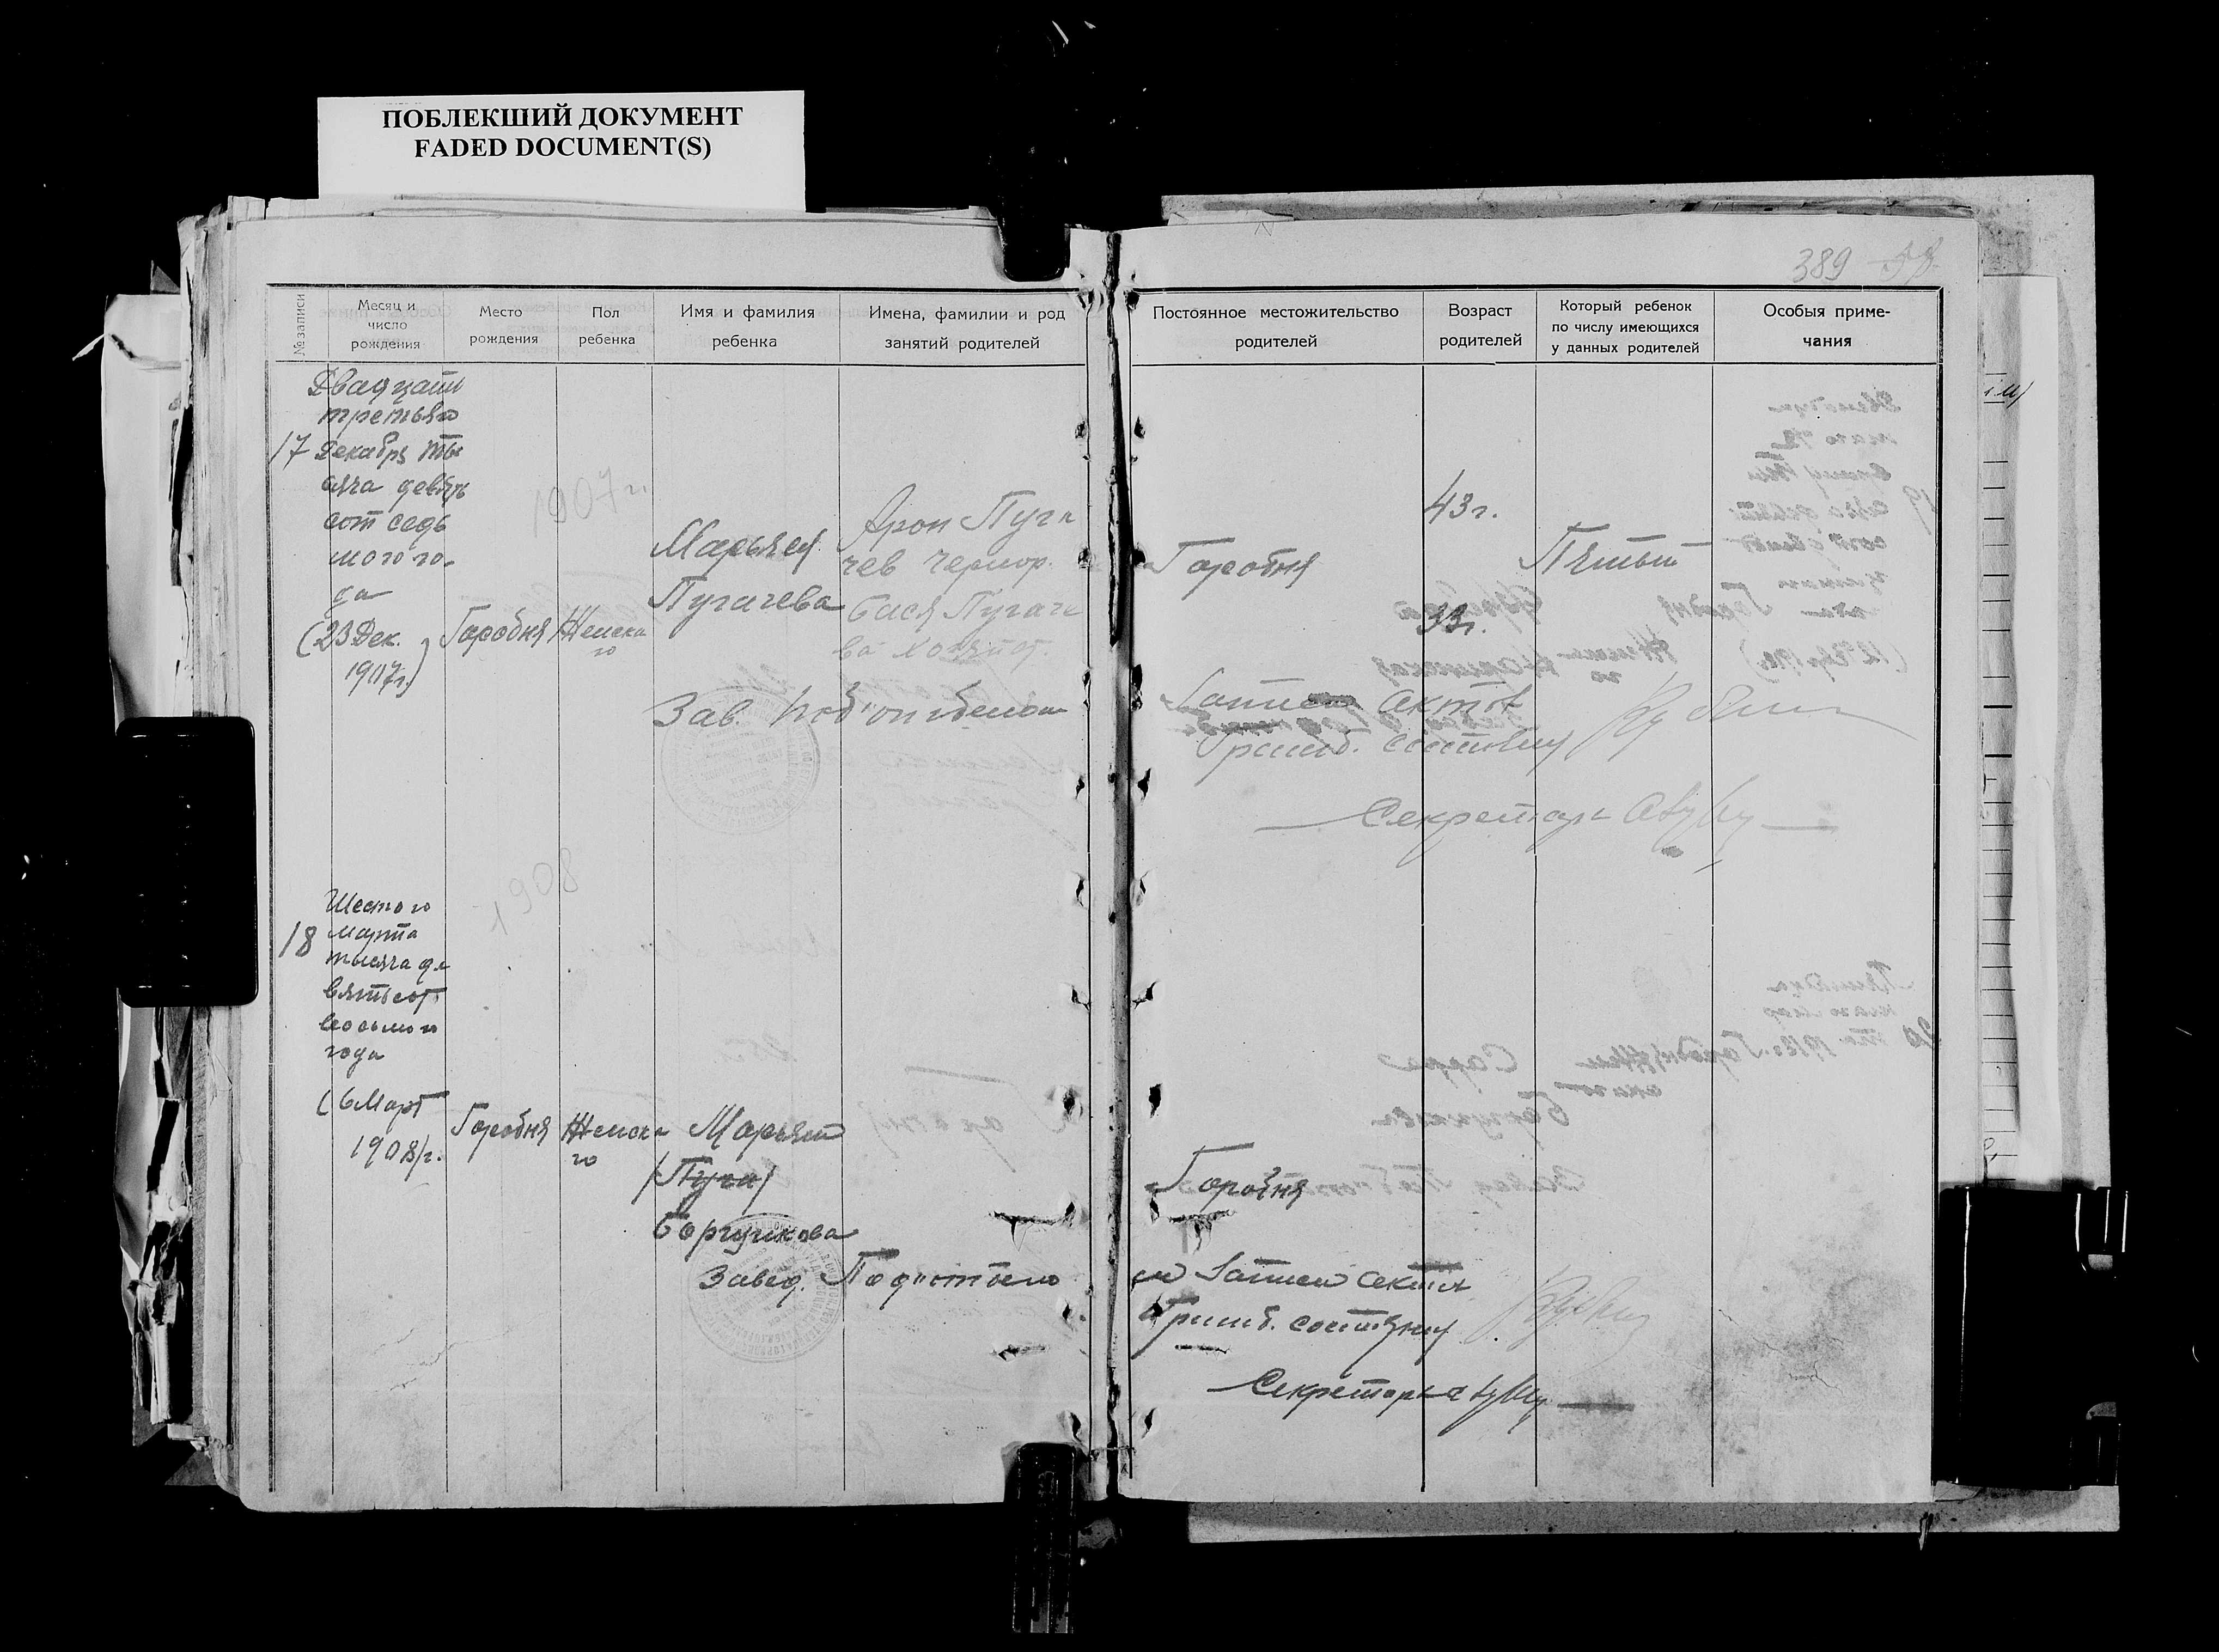 ПОБЛЕКШИЙ ДОКУМЕНТ
FADED DOCUMENT(S)
389
№ записи
Месяц и
число
рождения
Место
рождения
Пол
ребенка
Имя и фамилия
ребенка
Имена, фамилии и род
занятий родителей
Постоянное местожительство
родителей
Возраст
родителей
Который ребенок
по числу имеющихся
у данных родителей
Особыя приме-
чания
17
Двадцать
третьяго
Декабря ты
сяча девять
сот седь
мого го-
да
(23 Дек.
1907г.)
1907 г.
Городня
Женско
го
Марьяся
Пугачева
Арон Пуга
чев чернор.
Бася Пугаче
ва хозяйст.
Городня
43 г.
33 г.
Пятый
Зав. Под'отделом
Записи актов
Гражд. состояния
Секретарь
18
Шестого
марта
тысяча де
вятьсот
восьмого
года
(6 Март
1908)г.
1908
Городня
Женско
го
Марьяся
(Пуга)
Боргункова
Городня
Завед. Под'отдело
м Записи актов
Гражд. состояния
Секретарь